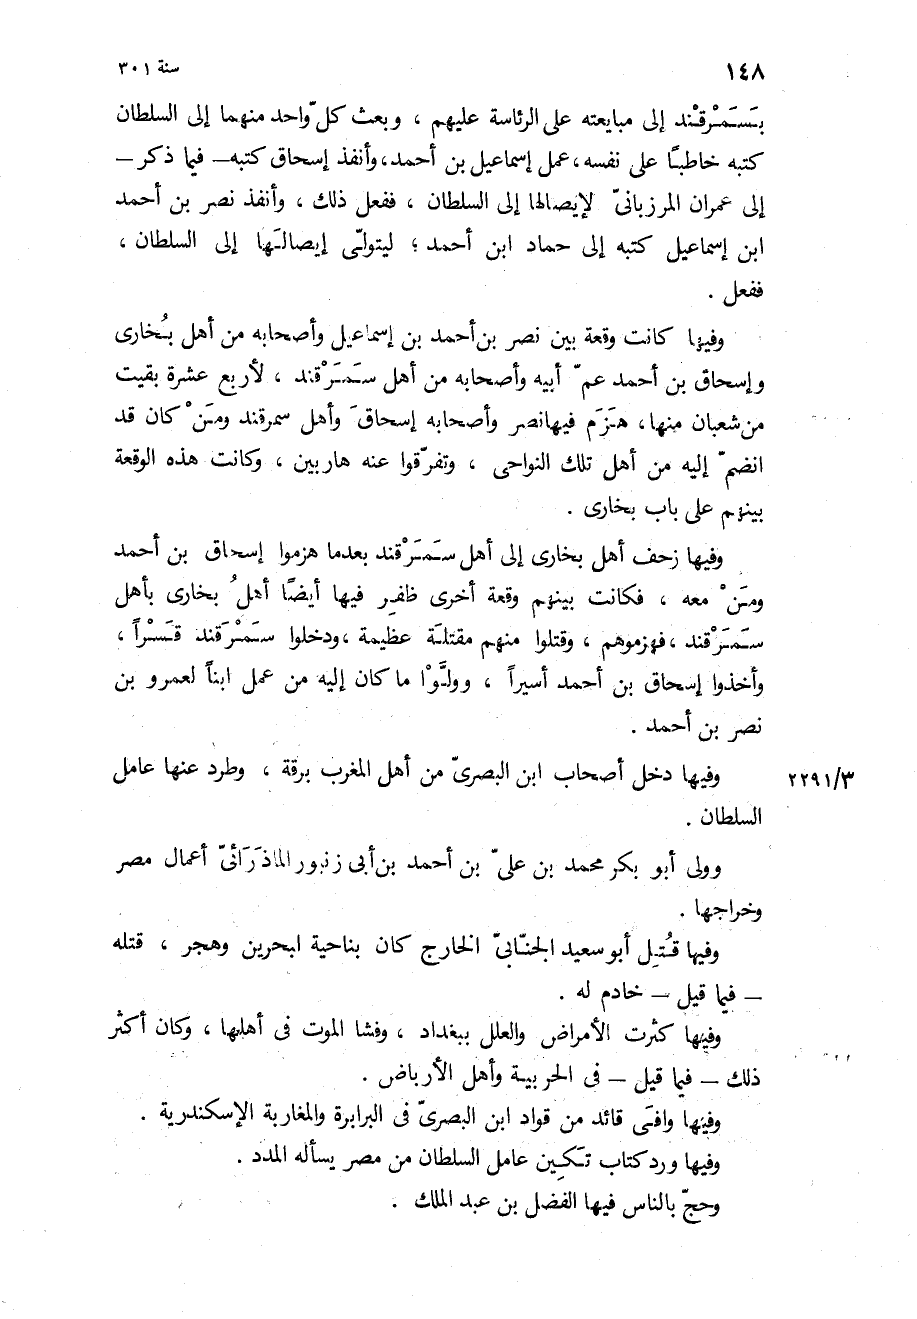 ١٤٨
سنة ٣٠١
بسَمَرْقَنْد إلى مبايعته على الرئاسة عليهم ، وبعث كلّ واحد منهما إلى السلطان
كتبه خاطبًا على نفسه، عمل إسماعيل بن أحمد، وأنفذ إسحاق كتبه – فيما ذكر –
إلى عمران المرزبانىّ لإيصالها إلى السلطان ، ففعل ذلك ، وأنفذ نصر بن أحمد
ابن إسماعيل كتبه إلى حماد ابن أحمد ؛ ليتولّى إيصالَها إلى السلطان ،
ففعل .
وفيها كانت وقعة بين نصر بن أحمد بن إسماعيل وأصحابه من أهل بُخارى
وإسحاق بن أحمد عمّ أبيه وأصحابه من أهل سَمَرْقند ، لأربع عشرة بقيت
من شعبان منها، هَزَم فيها نصر وأصحابه إسحاقَ وأهل سمرقند ومَنْ كان قد
انضمّ إليه من أهل تلك النواحى ، وتفرّقوا عنه هاربين ، وكانت هذه الوقعة
بينهم على باب بخارى .
وفيها زحف أهل بخارى إلى أهل سَمَرْقند بعدما هزموا إسحاق بن أحمد
ومَنْ معه ، فكانت بينهم وقعة أخرى ظفِر فيها أيضًا أهلُ بخارى بأهل
سَمَرْقند ، فهزموهم ، وقتلوا منهم مقتلَة عظيمة ، ودخلوا سَمَرْقند قَسْراً ،
وأخذوا إسحاق بن أحمد أسيراً ، وولَّوْا ما كان إليه من عمل ابناً لعمرو بن
نصر بن أحمد .
وفيها دخل أصحاب ابن البصرىّ من أهل المغرب برقة ، وطرد عنها عامل
٢٢٩١/٣
السلطان .
وولى أبو بكر محمد بن علىّ بن أحمد بن أبى زنبور الماذَرَائىّ أعمال مصر
وخراجها .
وفيها قُتِل أبو سعيد الجنّابىّ الخارج كان بناحية البحرين وهجر ، قتله
– فيما قيل – خادم له .
وفيها كثرت الأمراض والعلل ببغداد ، وفشا الموت فى أهلها ، وكان أكثر
ذلك – فيما قيل – فى الحربية وأهل الأرباض .
وفيها وافَى قائد من قواد ابن البصرىّ فى البرابرة والمغاربة الإسكندرية .
وفيها ورد كتاب تَكِين عامل السلطان من مصر يسأله المدد .
وحجّ بالناس فيها الفضل بن عبد الملك .